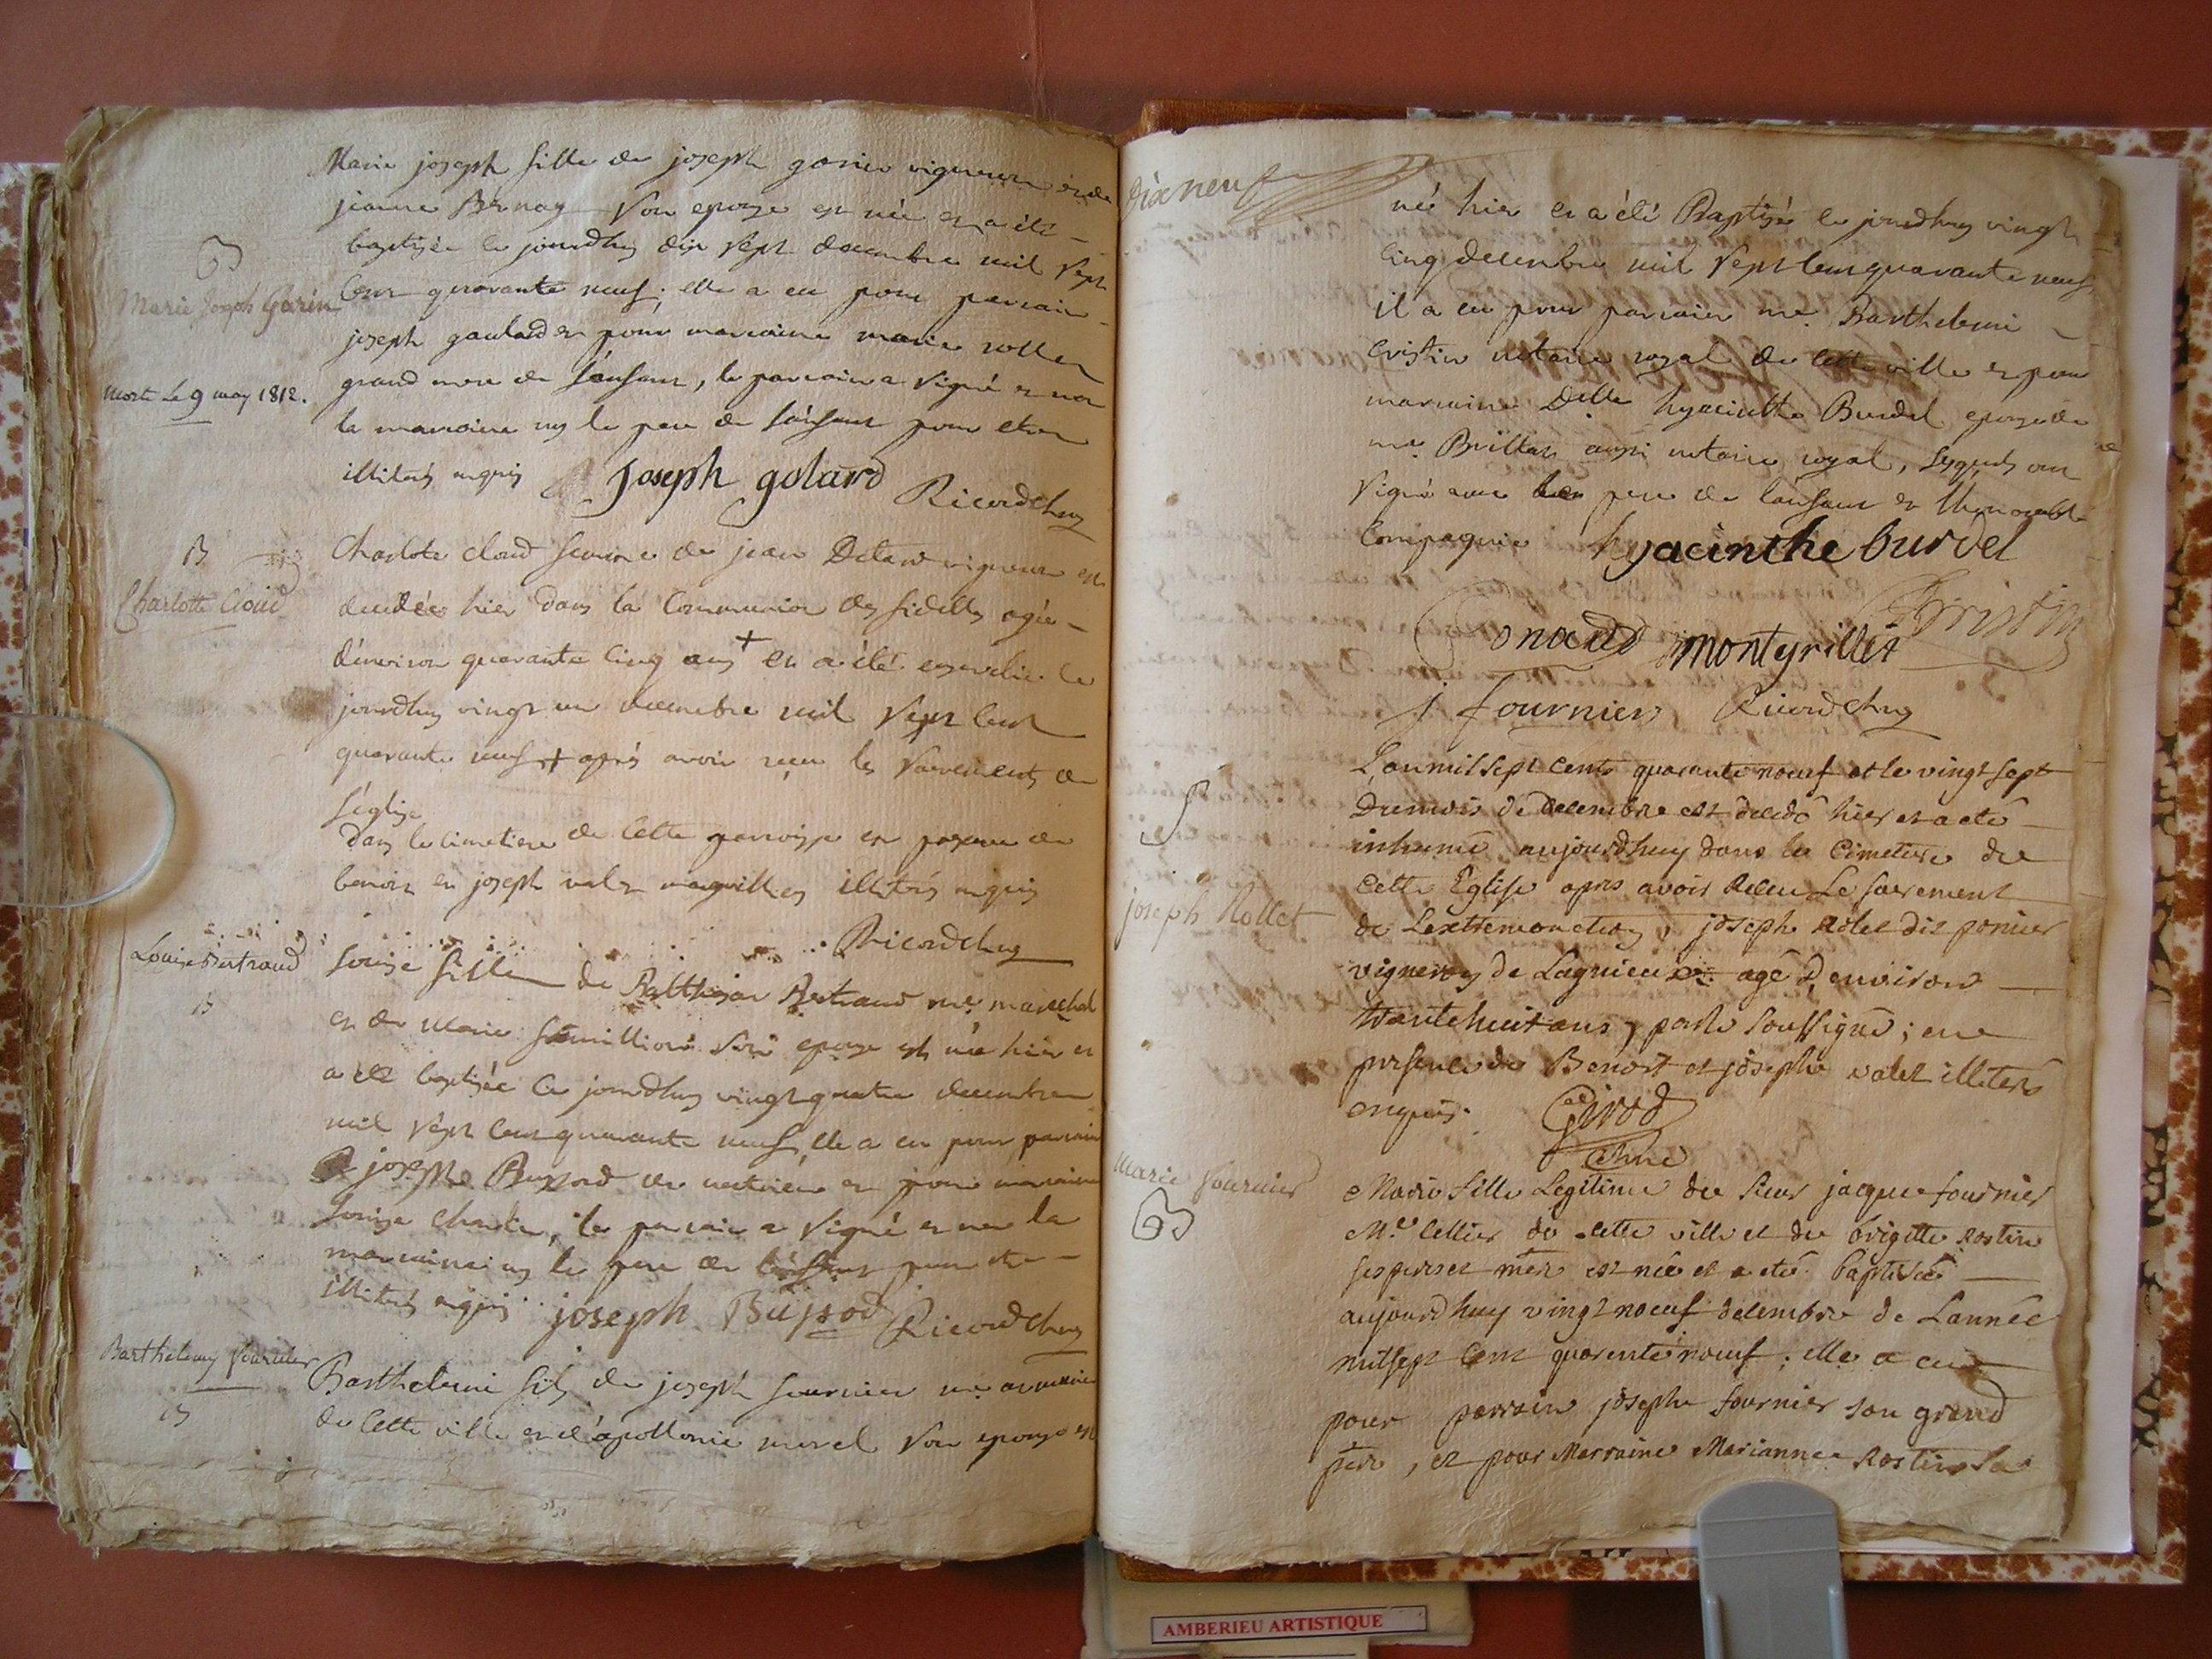 Marie joseph fille de joseph garin vigneron et de
jeanne Bernay son epouse est née et a été
baptisée ce jourdhuy dix sept decembre mil sept
B
Marie Joseph Garin
cent quarante neuf; elle a eu pour parrain
joseph goulard et pour marraine marie rollet
grand mere de l'enfant, le parrain a signé et non
morte Le 9 may 1812.
la marraine ny le pere de l'enfant pour etre
illiterés enquis Joseph golard Ricard
B
Charlotte Cloud
Charlote cloud femme de jean Delard vigneron est
decedée hier dans la Communion des fidelles agée
d'environ quarante cinq ans + et a été ensevelie ce
jourdhuy vingt un decembre mil sept cent
quarante neuf + aprés avoir reçu les sacrements de
l'église
dans le cimetiere de cette parroisse en presence de
benoit et joseph valet marguilliers illiterés enquis
Ricard
Louise Bertraud
B
Louise fille de Balthezar Bertraud me marechal
et de Marie son epouse est née hier et
a été baptisée ce jourdhuy vingt quatre decembre
mil sept cent quarante neuf, elle a eu pour parrain
joseph Bussod et pour marraine
Louise le parrain a signé et non la
marraine ny le pere de l'enfant pour etre
illiterés enquis joseph Bussod Ricard
Barthelemy fournier
B
Barthelemi fils de joseph fournier me
de cette ville et d'apollonie morel son epouse est
dix neuf
né hier et a été Baptizé ce jourdhuy vingt
cinq decembre mil sept cent quarante neuf,
il a eu pour parrain me Barthelemi
Cristin notaire royal de cette ville et pour
marraine Delle hyacinthe Burdel epouse de
me Brillat aussi notaire royal, lesquels ont
signé avec le pere de l'enfant et l'honorable
Compagnie hyacinthe burdel
Cristin
Conand montgrillet
j fournier Ricard
L'an mil sept cents quarante noeuf et le vingt sept
Du mois de decembre est decedé hier et a eté
inhumé aujourdhuy dans le Cimetiere de
Cette Eglise apres avoir Receu Le sacrement
joseph Rollet
de L'extremonction, joseph Rolet dit ponier
vigneron de Lagnieu agé d'environ
trante huit ans, par le soussigné; en
presence de Benoit et joseph valet illiterés
enquis. Girod
Marie fournier
B
Marie fille Legitime de sieur jacque fournier
Me Cellier de cette ville et de brigitte Rostin
ses pere et mere est née et a eté baptisée
aujourd huy vingt noeuf decembre de L'année
mil sept cent quarente noeuf. elle a eu
pour parrain joseph fournier son grand
pere, et pour Marraine Marianne Rostin sa
AMBERIEU ARTISTIQUE